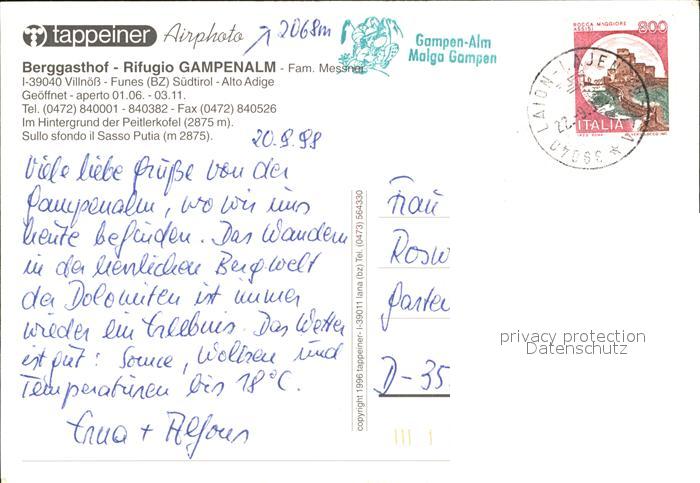 tappeiner Airphoto 2068m
Gampen-Alm
Malga Gampen
ROCCA MAGGIORE
ASSISI
800
ITALIA
Berggasthof - Rifugio GAMPENALM - Fam. Messner
I-39040 Villnöß - Funes (BZ) Südtirol - Alto Adige
Geöffnet - aperto 01.06. - 03.11.
Tel. (0472) 840001 - 840382 - Fax (0472) 840526
Im Hintergrund der Peitlerkofel (2875 m).
Sullo sfondo il Sasso Putia (m 2875).
20.9.98
Viele liebe Grüße von der
Gampenalm, wo wir uns
heute befinden. Das Wandern
in der herrlichen Bergwelt
der Dolomiten ist immer
wieder ein Erlebnis. Das Wetter
ist gut: Sonne, Wolken und
Temperaturen bis 18°C.
Erna + Alfons
copyright 1996 tappeiner- I-39011 lana (bz) Tel. (0473) 564330
Frau
Rosw
Garten
D-35
39040 LAION-LAJEN
privacy protection
Datenschutz